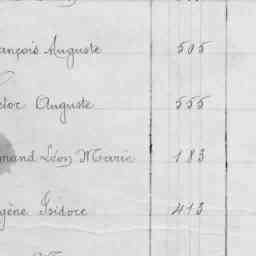 ançois Auguste 505
ctor Auguste 555
nand Léon Marie 183
gène Isidore 413